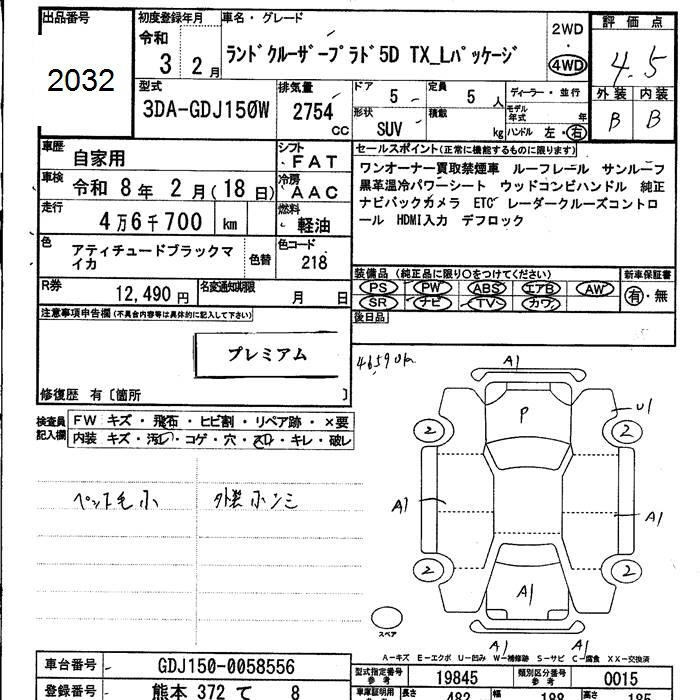 出品番号
2032
初度登録年月
令和
3 2月
車名・グレード
ランドクルーザープラド5D TX_Lパッケージ
2WD
・
4WD
評価点
4.5
外装 内装
B B
型式
3DA-GDJ150W
排気量
2754
CC
ドア
5
定員
5 人
形状
SUV
積載
kg
ディーラー・並行
モデル年式 年
ハンドル 左・右
車歴
自家用
シフト
FAT
車検
令和 8年 2月(18日)
冷房
AAC
走行
4万6千700 km
燃料
軽油
色
アティチュードブラックマイカ
色替
色コード
218
R券
12,490 円
名変通知期限
月 日
セールスポイント(正常に機能するものに限ります)
ワンオーナー買取禁煙車 ルーフレール サンルーフ
黒革温冷パワーシート ウッドコンビハンドル 純正
ナビバックカメラ ETC レーダークルーズコントロ
ール HDMI入力 デフロック
装備品(純正品に限り○をつけてください)
PS PW ABS エアB AW
SR ナビ TV カワ
新車保証書
有・無
後日品
注意事項申告欄(不具合内容等は具体的に記入して下さい)
プレミアム
修復歴 有〔箇所 〕
検査員記入欄
FW キズ・飛石・ヒビ割・リペア跡・×要
内装 キズ・汚レ・コゲ・穴・スレ・キレ・破レ
ペット毛小
外装小キズミ
46590km
A1
P
U1
2
2
A1
A1
2
2
A1
スペア
A1
A1
A-キズ E-エクボ U-凹み W-補修跡 S-サビ C-腐食 XX-交換済
車台番号
GDJ150-0058556
登録番号
熊本 372 て 8
型式指定番号
参考
19845
類別区分番号
参考
0015
車庫証明用
参考
長さ
482
幅
188
高さ
185